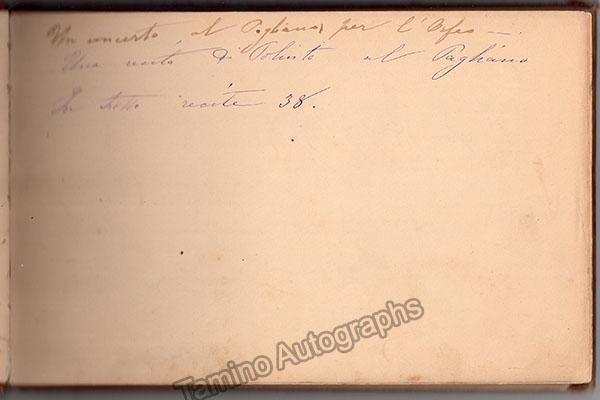 Un concerto al Pagliano per l'Orfeo —.
Una recita di Poliuto al Pagliano
In tutto recite 38.
Tamino Autographs